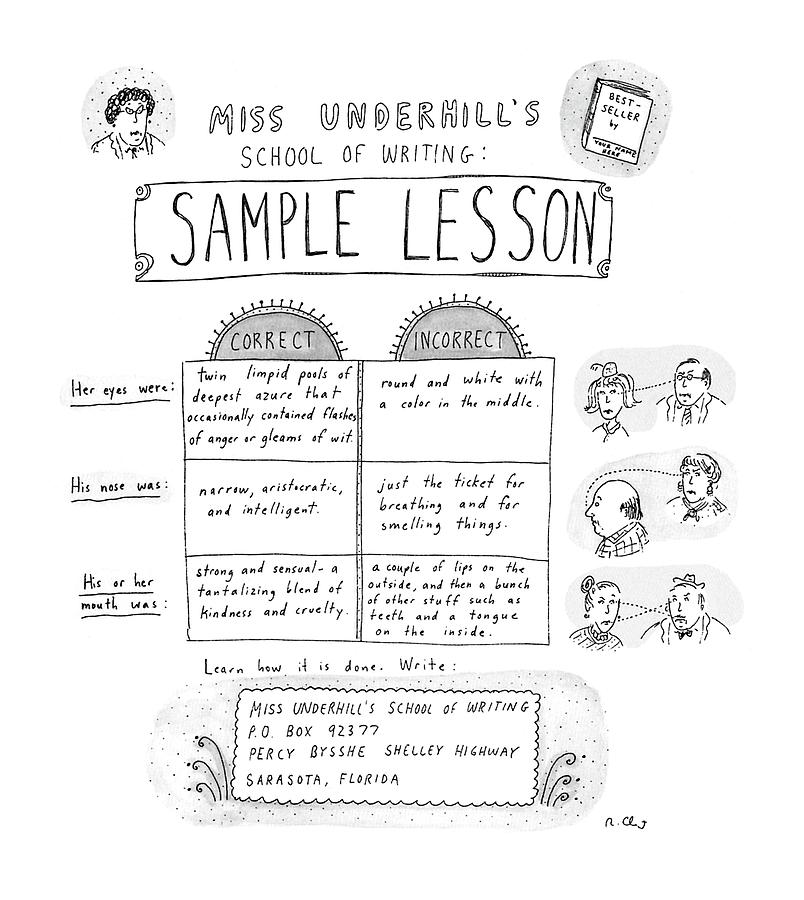 MISS UNDERHILL'S
BEST-
SELLER
by
YOUR NAME
HERE
SCHOOL OF WRITING:
SAMPLE LESSON
CORRECT
INCORRECT
Her eyes were:
twin limpid pools of
deepest azure that
occasionally contained flashes
of anger or gleams of wit.
round and white with
a color in the middle.
His nose was:
narrow, aristocratic,
and intelligent.
just the ticket for
breathing and for
smelling things.
His or her
mouth was:
strong and sensual - a
tantalizing blend of
kindness and cruelty.
a couple of lips on the
outside, and then a bunch
of other stuff such as
teeth and a tongue
on the inside.
Learn how it is done. Write:
MISS UNDERHILL'S SCHOOL OF WRITING
P.O. BOX 92377
PERCY BYSSHE SHELLEY HIGHWAY
SARASOTA, FLORIDA